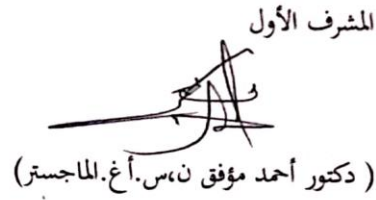 المشرف الأول
( دكتور أحمد مؤفق ن،س.أغ.الماجستر)